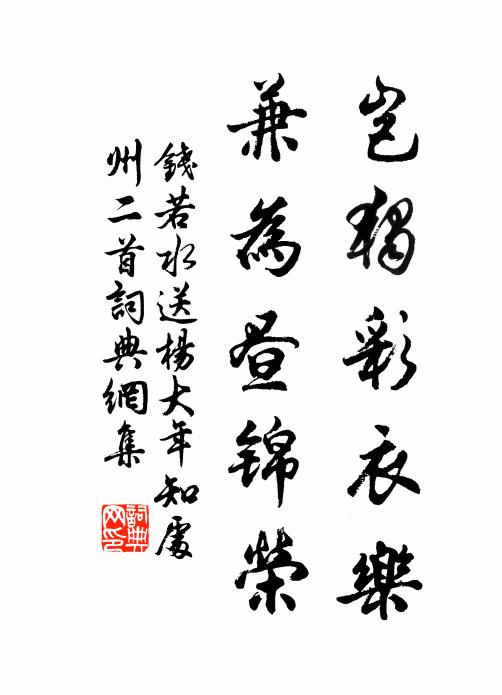 豈獨彩衣樂
兼為昼錦榮
錢若水送楊大年知處
州二首詞典網集
詞典
网印